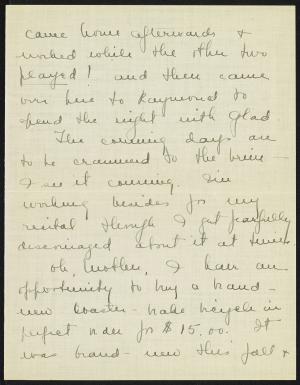 came home afterwards &
worked while the other two
played! and then came
over here to Raymond to
spend the night with Glad
The coming days are
to be crammed to the brim -
I see it coming. I'm
working besides for my
recital though I get fearfully
discouraged about it at times
Oh, Mother, I have an
opportunity to buy a brand-
new coaster-brake bicycle in
perfect order for $15.00. It
was brand-new this fall &